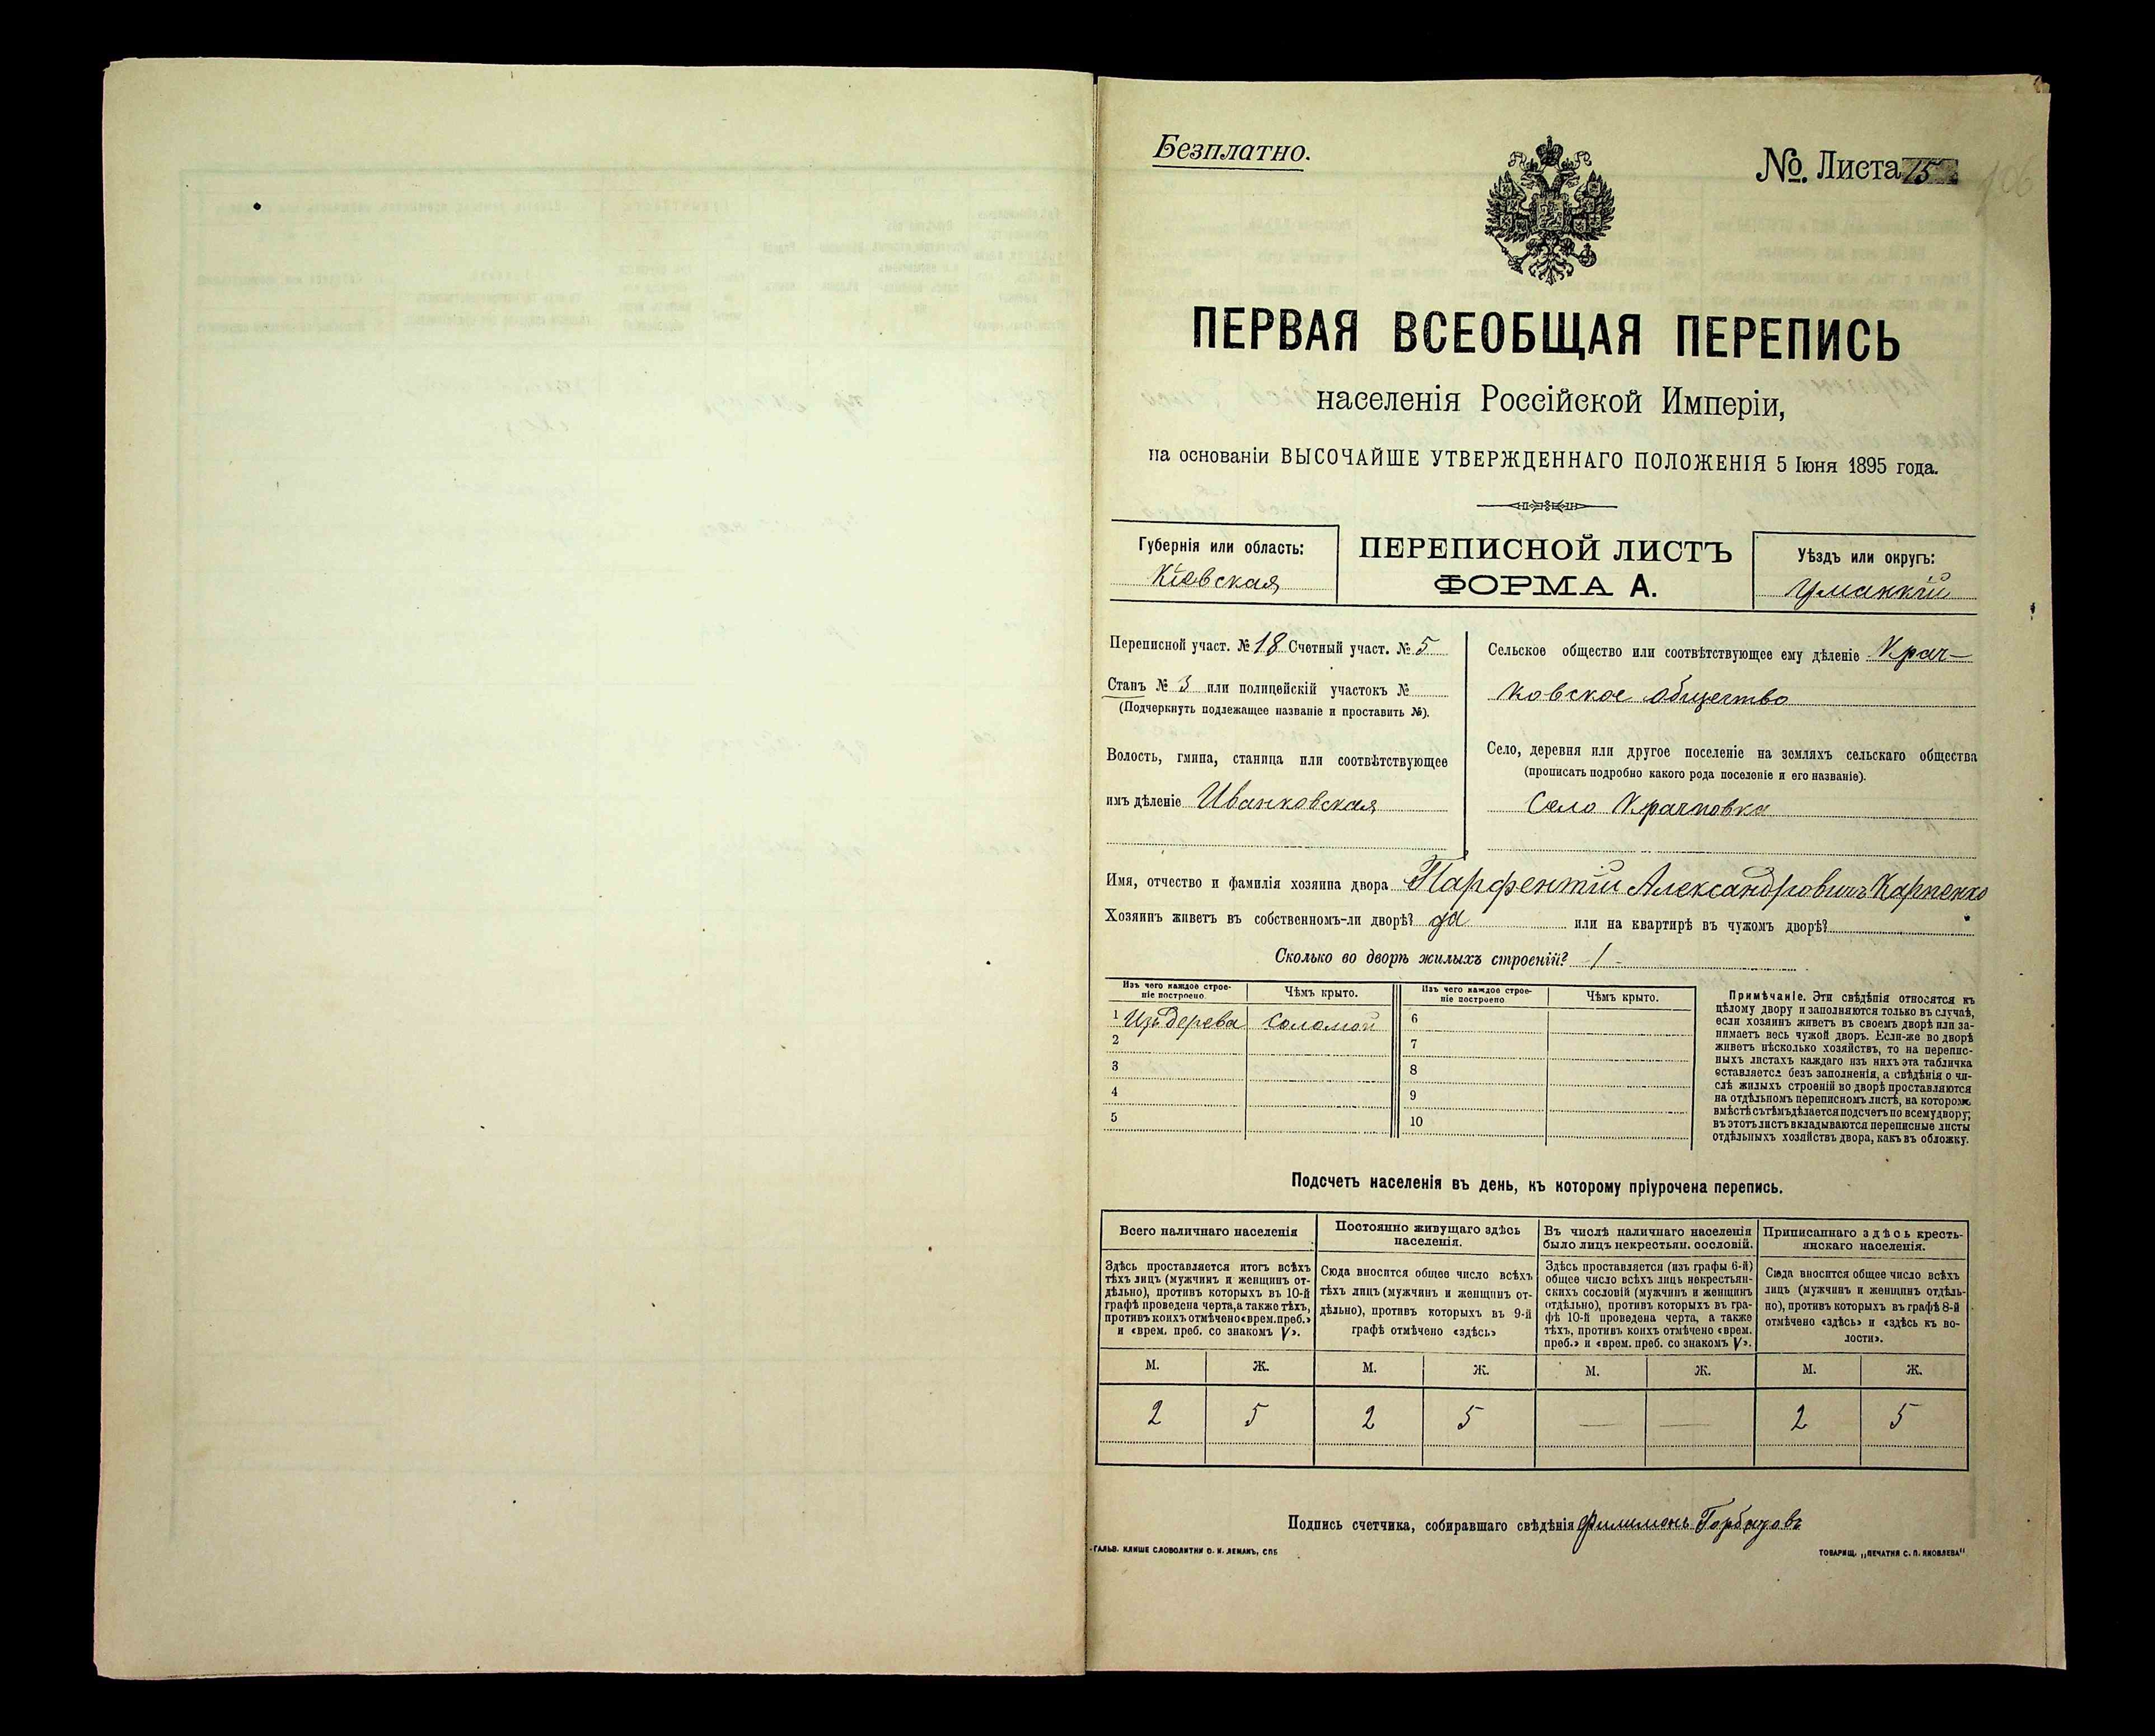 Безплатно.
№. Листа 15
106
ПЕРВАЯ ВСЕОБЩАЯ ПЕРЕПИСЬ
населенія Россійской Имперіи,
на основаніи ВЫСОЧАЙШЕ УТВЕРЖДЕННАГО ПОЛОЖЕНІЯ 5 Іюня 1895 года.
Губернія или область:
Кіевская
ПЕРЕПИСНОЙ ЛИСТЪ
ФОРМА А.
Уѣздъ или округъ:
Уманскій
Переписной участ. № 18 Счетный участ. № 5
Станъ № 3 или полицейскій участокъ №
(Подчеркнуть подлежащее названіе и проставить №).
Волость, гмина, станица или соотвѣтствующее
имъ дѣленіе Иванковская
Сельское общество или соотвѣтствующее ему дѣленіе Крач-
ковское общество
Село, деревня или другое поселеніе на земляхъ сельскаго общества
(прописать подробно какого рода поселеніе и его названіе).
Село Крачковка
Имя, отчество и фамилія хозяина двора Парфентій Александровичъ Карпенко
Хозяинъ живетъ въ собственномъ-ли дворѣ? да или на квартирѣ въ чужомъ дворѣ?
Сколько во дворѣ жилыхъ строеній? 1
Изъ чего каждое строе-
ніе построено.
Чѣмъ крыто.
Изъ чего каждое строе-
ніе построено
Чѣмъ крыто.
1 Изъ дерева соломой 6
2 7
3 8
4 9
5 10
Примѣчаніе. Эти свѣдѣнія относятся къ
цѣлому двору и заполняются только въ случаѣ,
если хозяинъ живетъ въ своемъ дворѣ или за-
нимаетъ весь чужой дворъ. Если-же во дворѣ
живетъ нѣсколько хозяйствъ, то на перепис-
ныхъ листахъ каждаго изъ нихъ эта табличка
оставляется безъ заполненія, а свѣдѣнія о чи-
слѣ жилыхъ строеній во дворѣ проставляются
на отдѣльномъ переписномъ листѣ, на которомъ
вмѣстѣ съ тѣмъ дѣлается подсчетъ по всему двору;
въ этотъ листъ вкладываются переписные листы
отдѣльныхъ хозяйствъ двора, какъ въ обложку.
Подсчетъ населенія въ день, къ которому пріурочена перепись.
Всего наличнаго населенія
Здѣсь проставляется итогъ всѣхъ
тѣхъ лицъ (мужчинъ и женщинъ от-
дѣльно), противъ которыхъ въ 10-й
графѣ проведена черта, а также тѣхъ,
противъ коихъ отмѣчено «врем. преб.»
и «врем. преб. со знакомъ V».
Постоянно живущаго здѣсь
населенія.
Сюда вносится общее число всѣхъ
тѣхъ лицъ (мужчинъ и женщинъ от-
дѣльно), противъ которыхъ въ 9-й
графѣ отмѣчено «здѣсь»
Въ числѣ наличнаго населенія
было лицъ некрестьян. сословій.
Здѣсь проставляется (изъ графы 6-й)
общее число всѣхъ лицъ некрестьян-
скихъ сословій (мужчинъ и женщинъ
отдѣльно), противъ которыхъ въ гра-
фѣ 10-й проведена черта, а также
тѣхъ, противъ коихъ отмѣчено «врем.
преб.» и «врем. преб. со знакомъ V».
Приписаннаго здѣсь кресть-
янскаго населенія.
Сюда вносится общее число всѣхъ
лицъ (мужчинъ и женщинъ отдѣль-
но), противъ которыхъ въ графѣ 8-й
отмѣчено «здѣсь» и «здѣсь къ во-
лости».
М. Ж. М. Ж. М. Ж. М. Ж.
2 5 2 5 — — 2 5
Подпись счетчика, собиравшаго свѣдѣнія Филимонъ
ГАЛЬВ. КЛИШЕ СЛОВОЛИТНИ О. И. ЛЕМАНЪ, СПБ
ТОВАРИЩ. „ПЕЧАТНЯ С. П. ЯКОВЛЕВА"